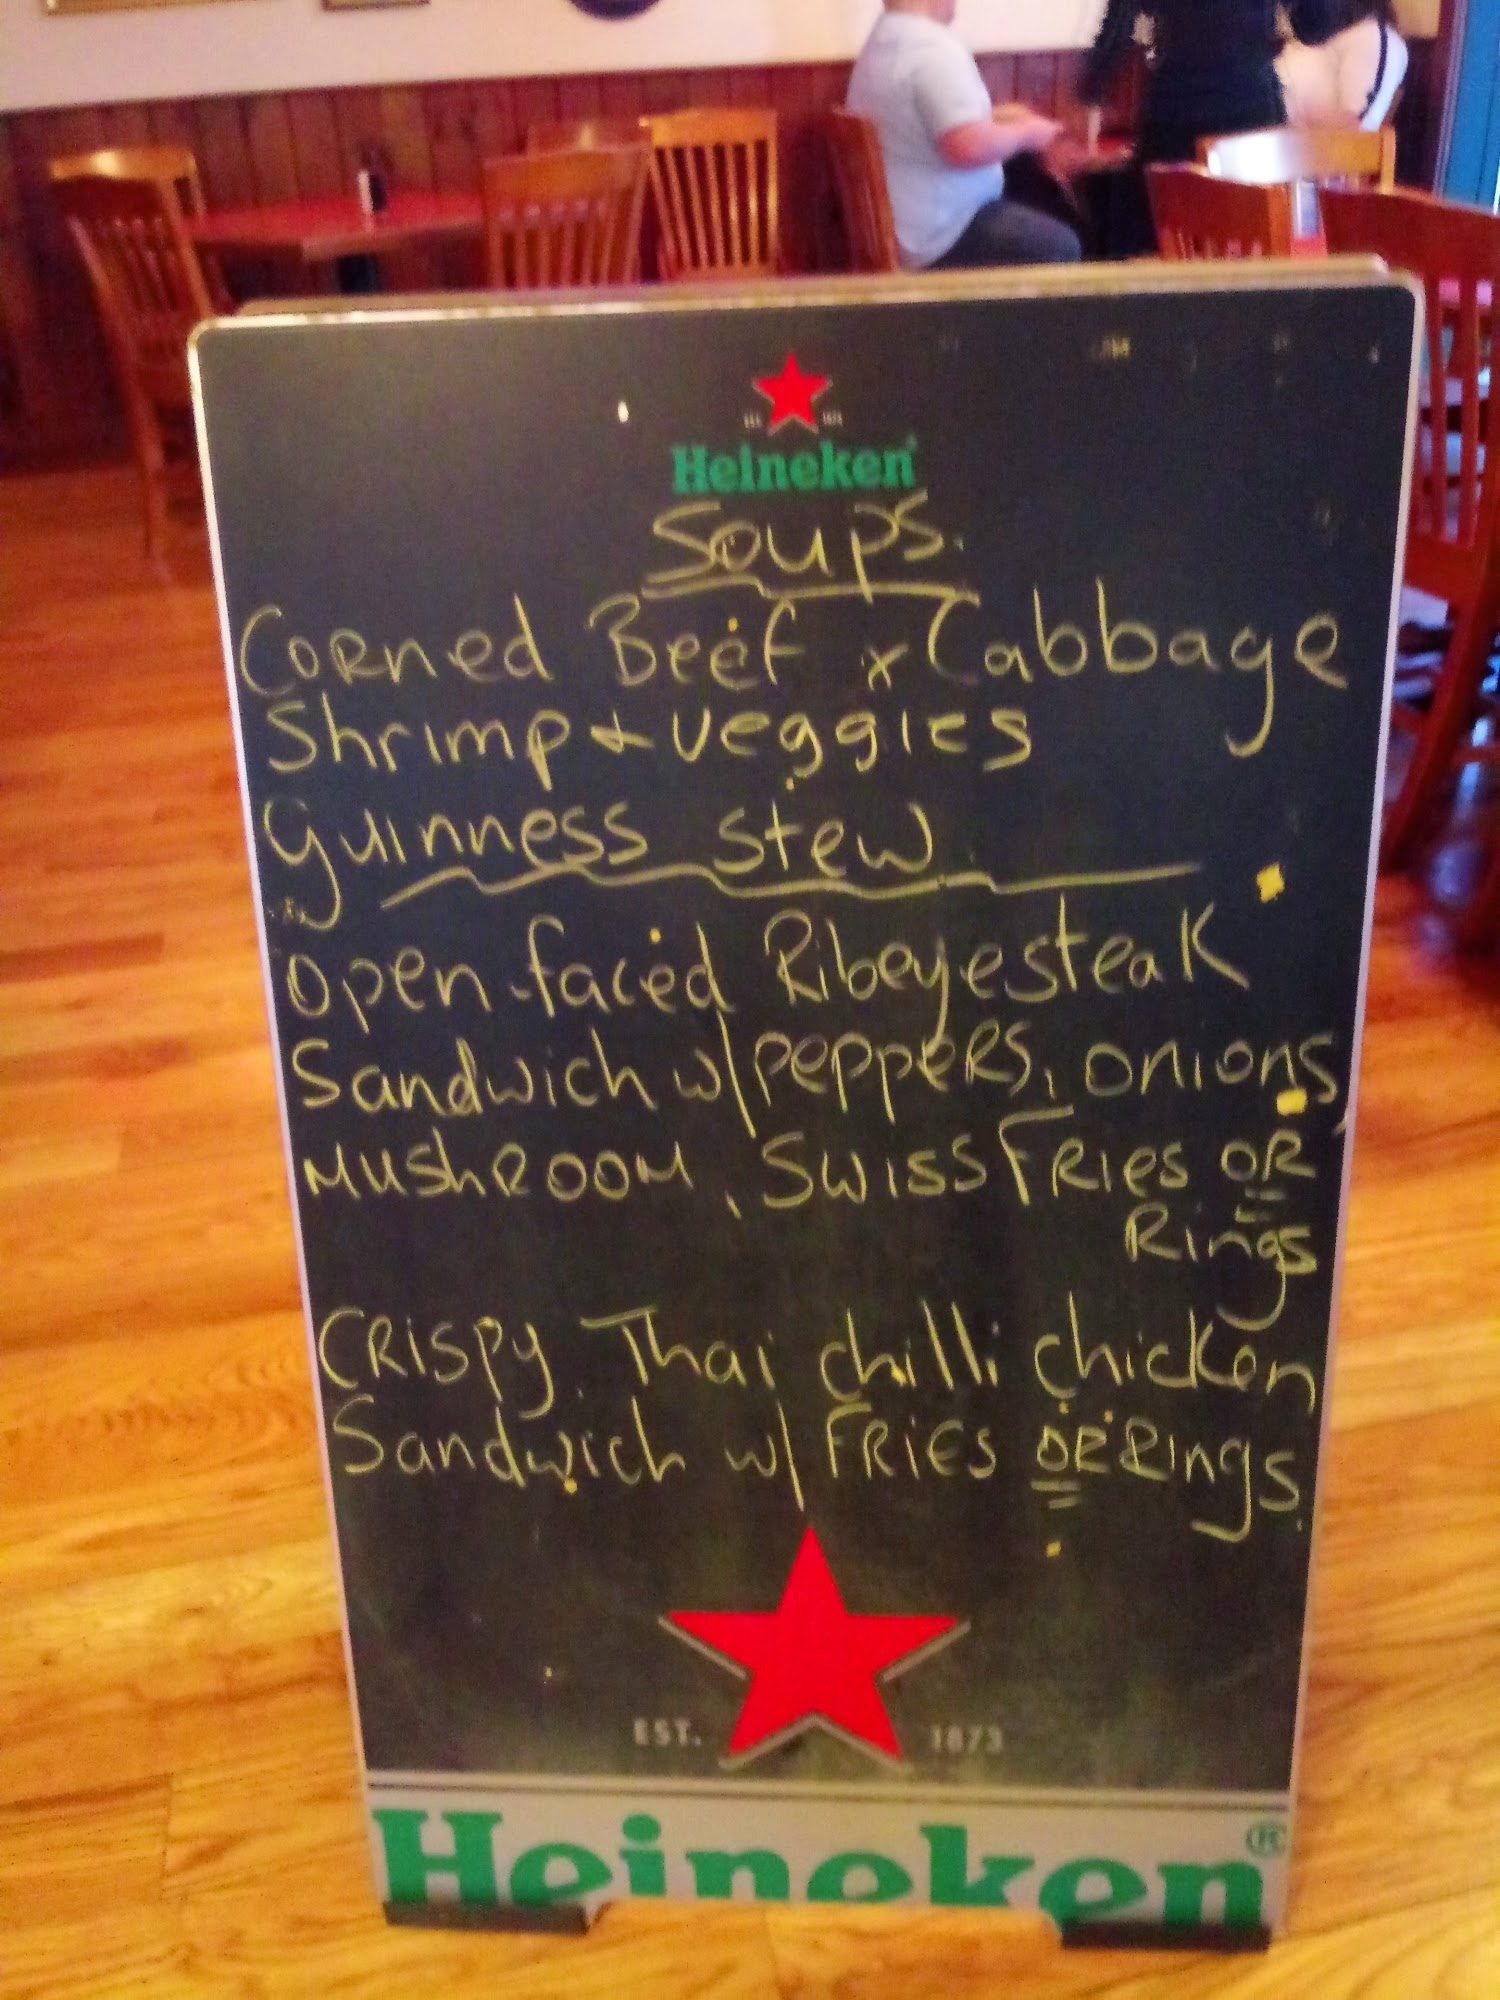 Heineken
Soups.
Corned Beef & Cabbage
Shrimp & veggies
Guinness stew.
Open-faced Ribeyesteak
Sandwich w/peppers, onions,
Mushroom, Swiss Fries OR
Rings
Crispy Thai chilli chicken
Sandwich w/ Fries OR Rings.
EST. 1873
Heineken®